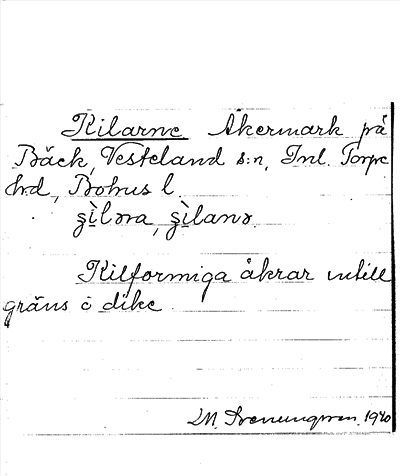 Kilarne Åkermark på
Bäck, Vesteland s:n, Inl. Torpe
hd, Bohus l.
ʂi̬̇lɘra, ʂi̬̇lanɘ.
Kilformiga åkrar intill
gräns o dike.
1920